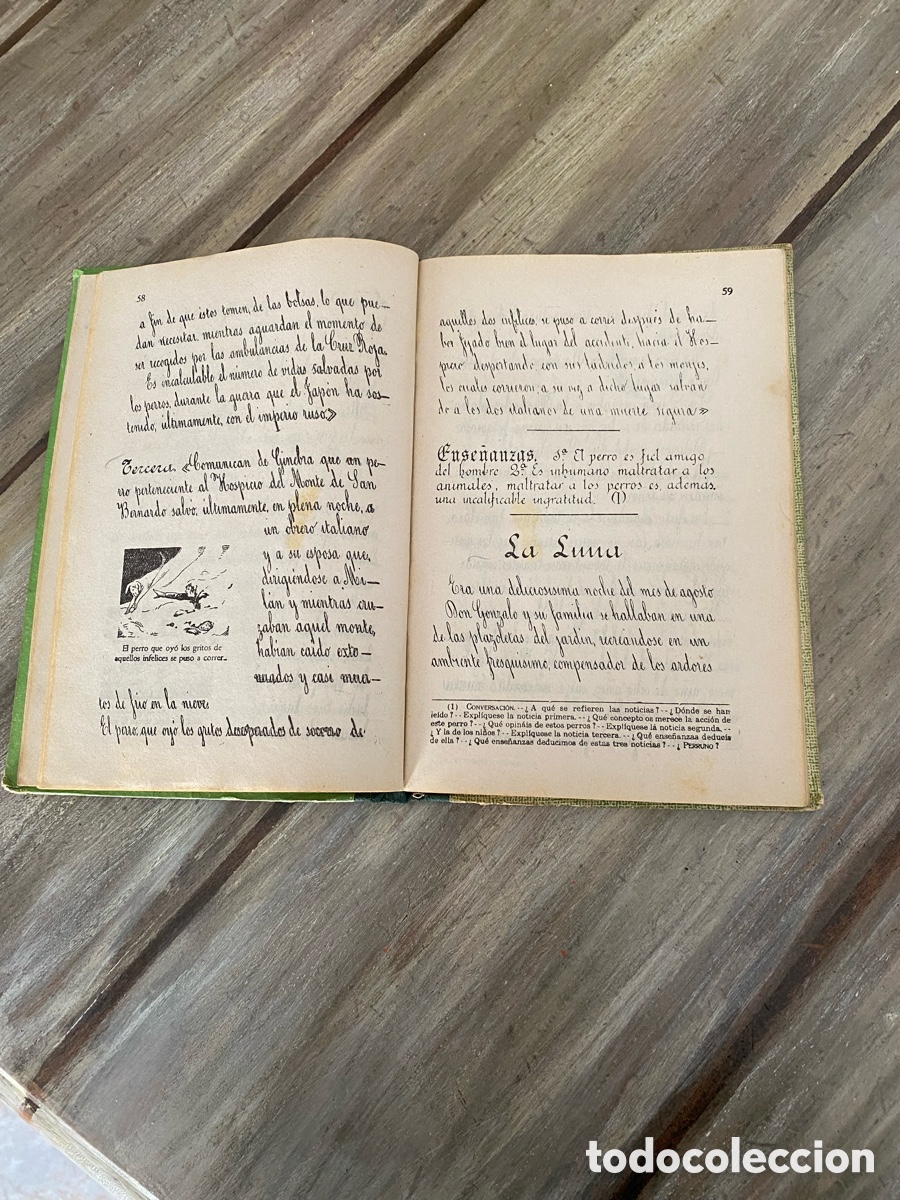 58
a fin de que éstos tomen, de las bolsas, lo que pue-
dan necesitar, mientras aguardan el momento de
ser recogidos por las ambulancias de la Cruz Roja.
Es incalculable el número de vidas salvadas por
los perros, durante la guerra que el Japón ha sos-
tenido, últimamente, con el imperio ruso.»
Tercera. «Comunican de Ginebra que un pe-
rro perteneciente al Hospicio del Monte de San
Bernardo salvó, últimamente, en plena noche, a
un obrero italiano
y a su esposa que,
dirigiéndose a Mi-
lán y mientras cru-
zaban aquel monte,
habían caído exte-
nuados y casi muer-
tos de frío en la nieve.
El perro que oyó los gritos de
aquellos infelices se puso a correr...
El perro, que oyó los gritos desesperados de socorro de
59
aquellos dos infelices, se puso a correr después de ha-
ber fijado bien el lugar del accidente, hacia el Hos-
picio despertando con sus ladridos a los monjes,
los cuales corrieron a su vez a dicho lugar salvan-
do a los dos italianos de una muerte segura»
Enseñanzas. 1ª El perro es fiel amigo
del hombre 2ª Es inhumano maltratar a los
animales, maltratar a los perros es, además,
una incalificable ingratitud. (1)
La Luna
Era una deliciosísima noche del mes de agosto
Don Gonzalo y su familia se hallaban en una
de las plazoletas del jardín, recreándose en un
ambiente fresquísimo, compensador de los ardores
(1) CONVERSACIÓN.--¿A qué se refieren las noticias?--¿Dónde se han
leído?--Explíquese la noticia primera.--¿Qué concepto os merece la acción de
este perro?--¿Qué opináis de estos perros?--Explíquese la noticia segunda.--
¿Y la de los niños?--Explíquese la noticia tercera.--¿Qué enseñanzas deducís
de ella?--¿Qué enseñanzas deducimos de estas tres noticias?--¿PERRUNO?
todocoleccion